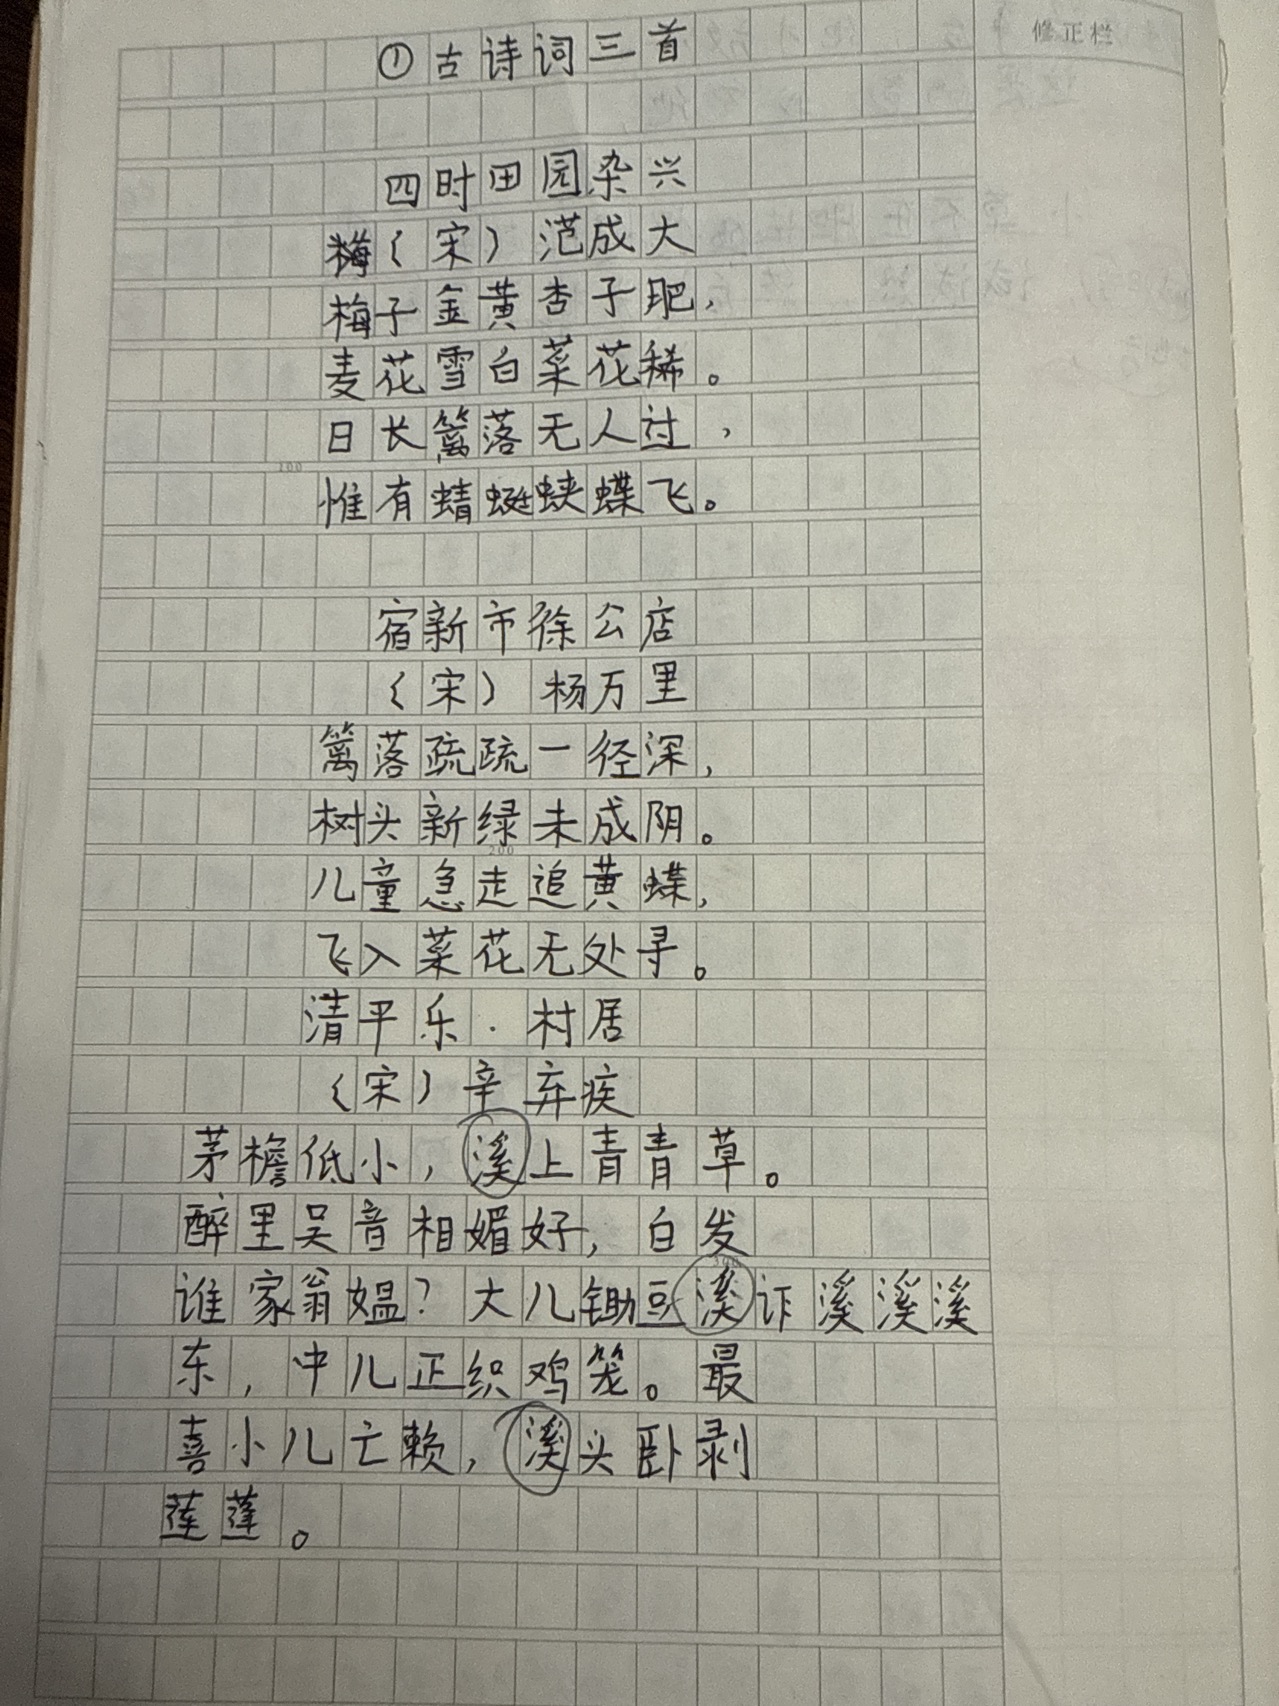 ①古诗词三首
修正栏
四时田园杂兴
梅（宋）范成大
梅子金黄杏子肥，
麦花雪白菜花稀。
日长篱落无人过，
100
惟有蜻蜓蛱蝶飞。
宿新市徐公店
（宋）杨万里
篱落疏疏一径深，
树头新绿未成阴。
200
儿童急走追黄蝶，
飞入菜花无处寻。
清平乐·村居
（宋）辛弃疾
茅檐低小，溪上青青草。
醉里吴音相媚好，白发
300
谁家翁媪？大儿锄豆溪讠乍溪溪溪
东，中儿正织鸡笼。最
喜小儿亡赖，溪头卧剥
莲蓬。